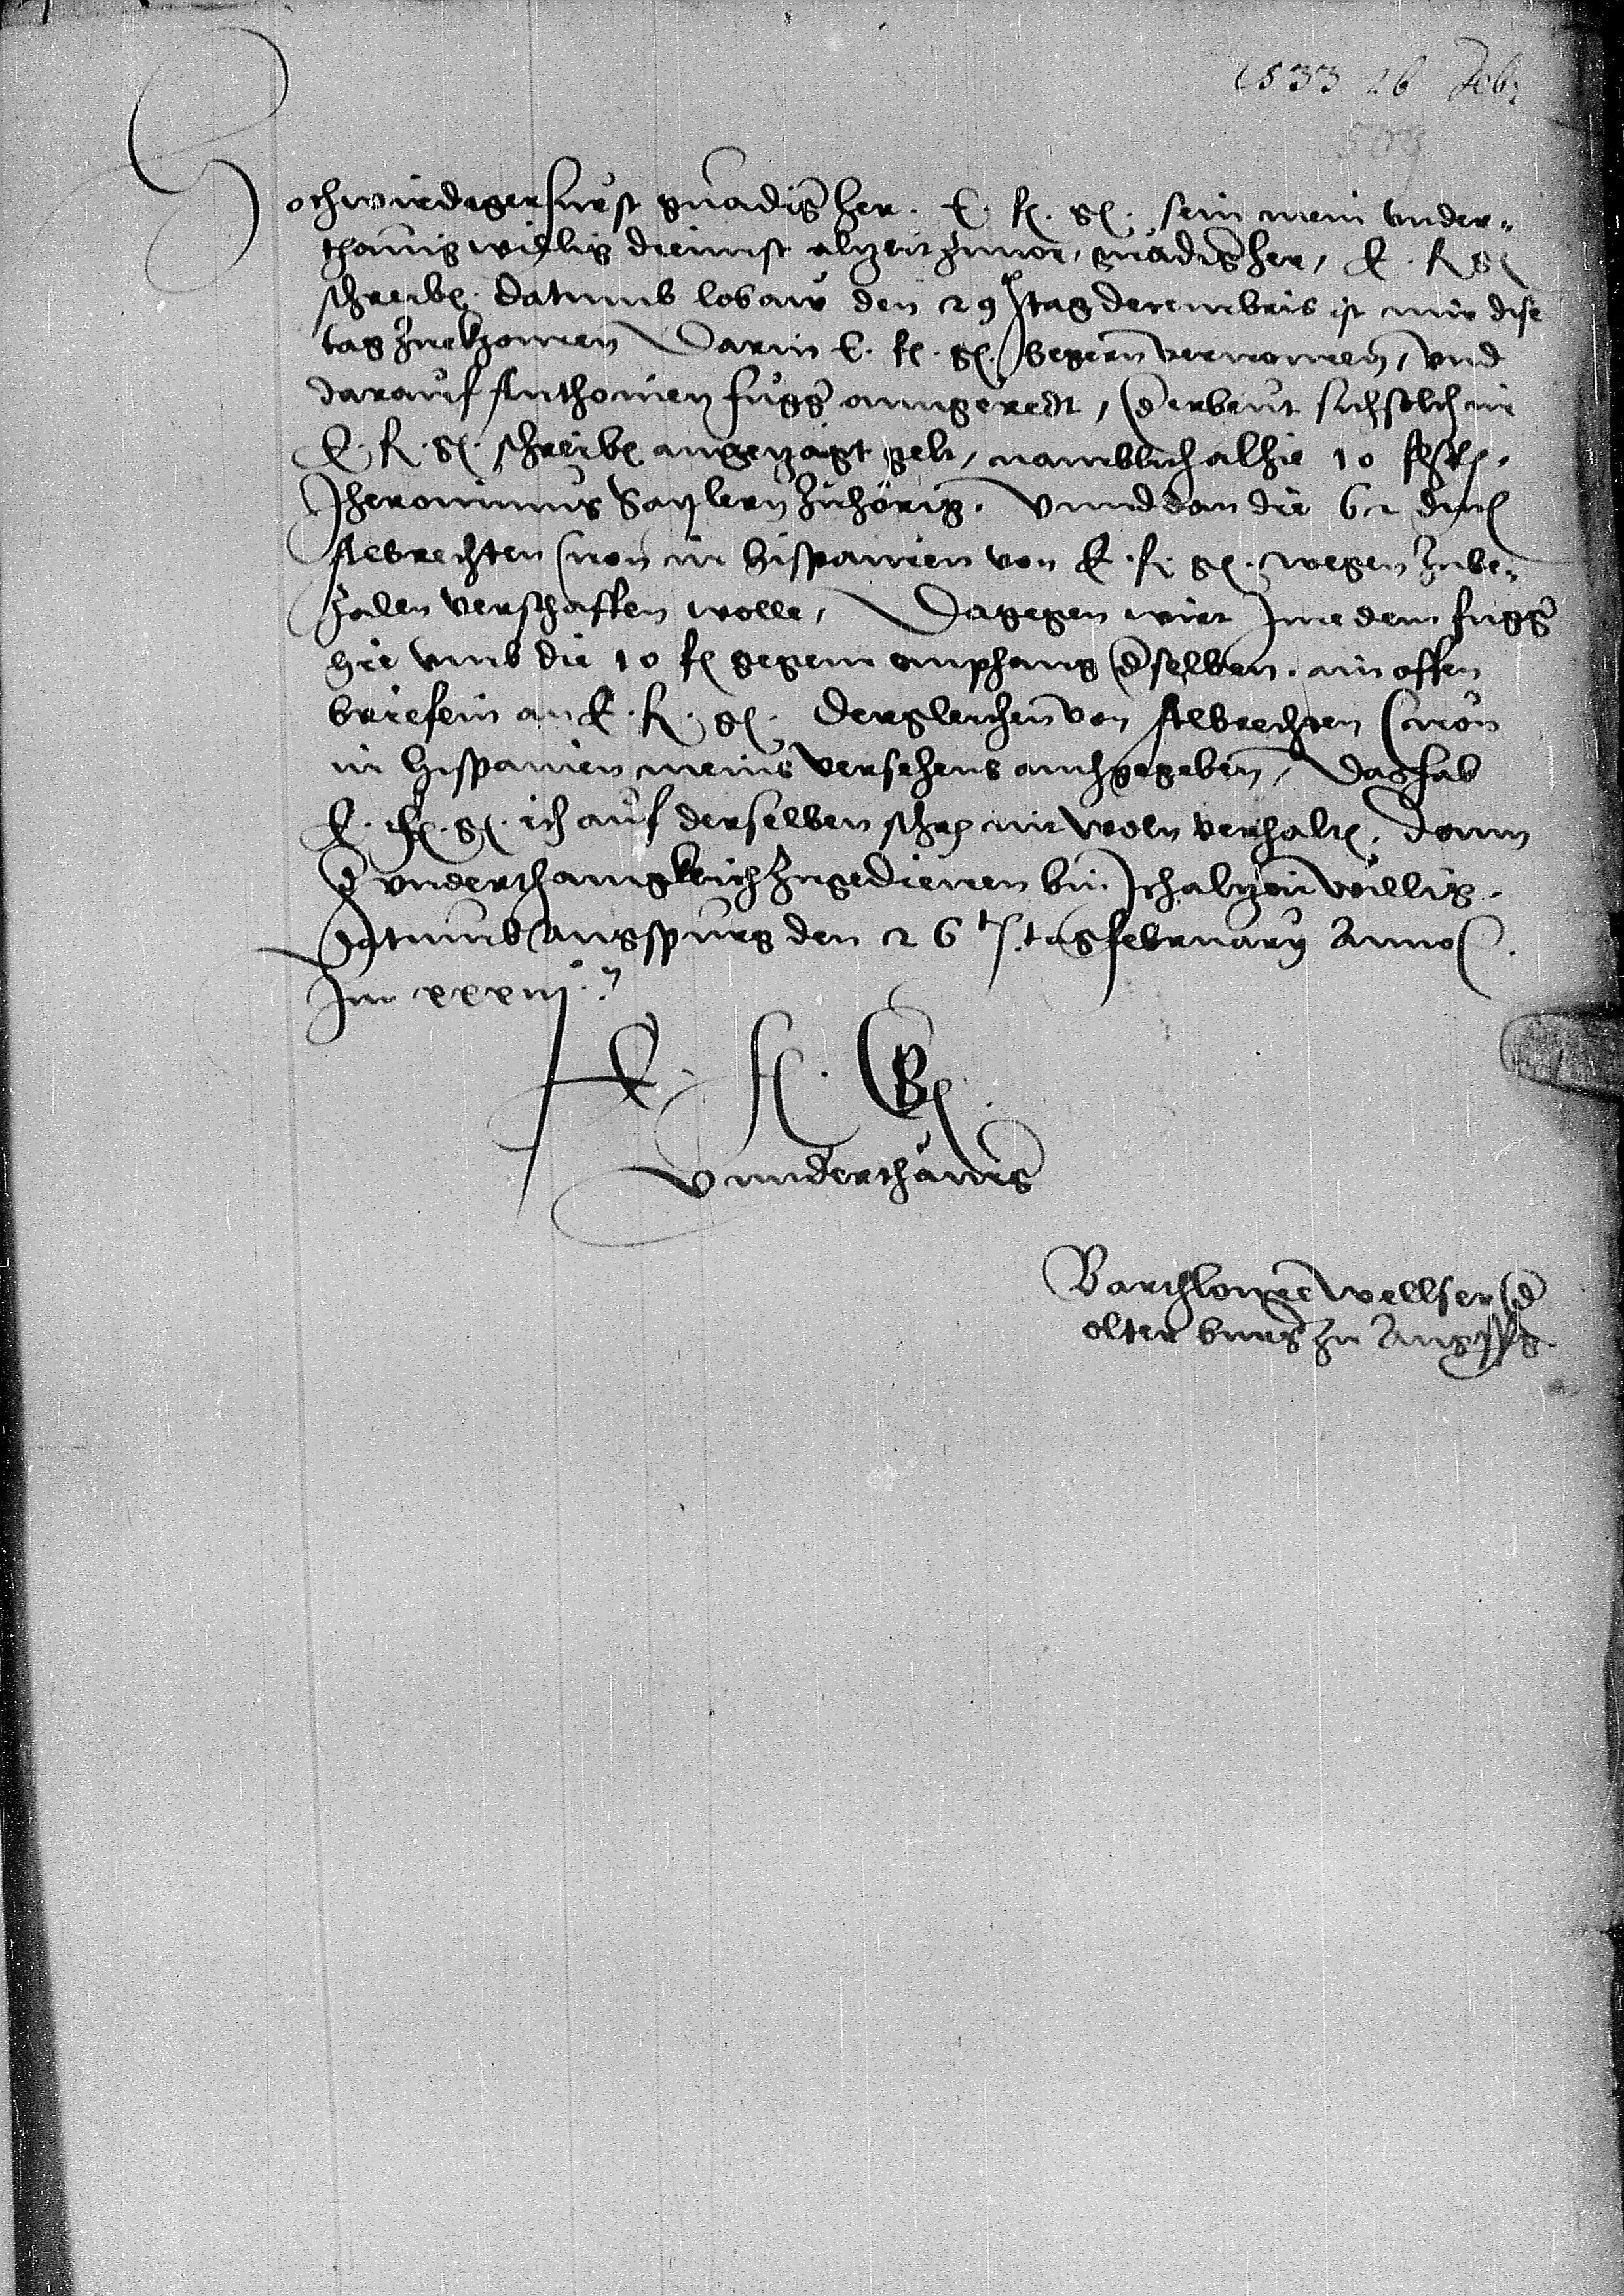 1533 26 Feb
509
Hochwirdiger Furst gnadig her. E. f. g. sein mein vnder„
thanig willig dienmst alzeit zuuor, gnadig her, E. f. g.
schreiben datumb lobaw den 29 tag decembris ist mir dise
tag zuekhomen Darin E. f. g. begern vernomen, vnd
darauf Anthonien fugg anngeredt, d erbeut sich solch in
E. f. g. schreiben angezaigt gelt, namblich alhie 10
Jheronimus Saylern zuhörig. Vnnd dan die 62 duc
Albrechten Cuon in hispanien von E. f. g. wegen zube„
zalen verschaffen wolle, Dagegen wirt Ime dem fugg
hie vmb die 10 f gegem emphang dselben. ain offen
briefein an E. f. g. dergleichen von Albrechten Cuon
in hispanien meins versehens auch gegeben, Das hab
E. f. g. ich auf derselben schr nit woln verhalten. dann
d vnderthanigklich zugedienen bin Ich alzeit willig.
Datumb Augspurg den 26 tag february Anno
Im xxxiij.
E. f. G.
Vnnderthanig
Barthlome Wellser d
elter burg zu Augspg